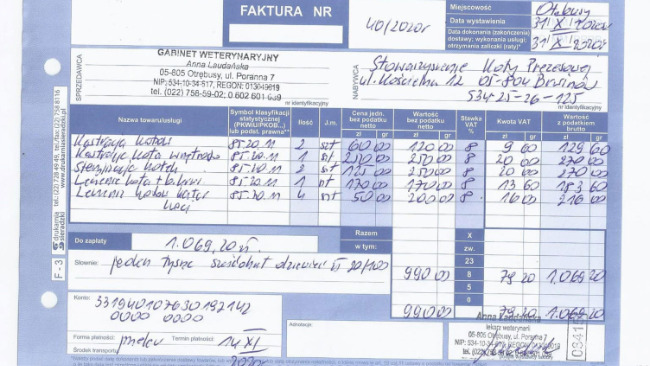 FAKTURA NR 40/2020r
Miejscowość Otrębusy
Data wystawienia 31 X 2020r
Data dokonania (zakończenia) dostawy; wykonania usługi; otrzymania zaliczki (raty)* 31 X 2020r
SPRZEDAWCA
GABINET WETERYNARYJNY
Anna Laudańska
05-805 Otrębusy, ul. Poranna 7
NIP: 534-10-34-517, REGON: 013049619
tel. (022) 758-59-02; 0 602 601 639
nr identyfikacyjny
NABYWCA
Stowarzyszenie Koty Prezesowej
ul. Kościelna 12 05-804
534-25-26-125
nr identyfikacyjny
Nazwa towaru/usługi Symbol klasyfikacji statystycznej (PKWiU/PKOB..) lub podst. prawna** Ilość J.m. Cena jedn. bez podatku netto Wartość bez podatku netto Stawka VAT Kwota VAT Wartość z podatkiem brutto
zł gr zł gr % zł gr zł gr
Kastracja kotów 85.20.11 2 szt 60 00 120 00 8 9 60 129 60
Kastracja kota 85.20.11 1 szt 250 00 250 00 8 20 00 270 00
Sterylizacja kotek 85.20.11 2 szt 125 00 250 00 8 20 00 270 00
Leczenie kota 85.20.11 1 szt 170 00 170 00 8 13 60 183 60
Leczenie kotów 85.20.11 4 szt 50 00 200 00 8 16 00 216 00
Do zapłaty 1.069,20 zł
Razem X
w tym: zw.
23
990 00 8 79 20 1.069 20
5
0
990 00 79 20 1.069 20
Słownie: jeden tysiąc sześćdziesiąt dziewięć zł 20/100
Konto: 33194010763019 2142
0000 0000
Adnotacje:
Forma płatności przelew Termin płatności 14 XI 2020r
Środek transportu
Anna Laudańska
lekarz weterynarii
05-805 Otrębusy, ul. Poranna 7
F - 3